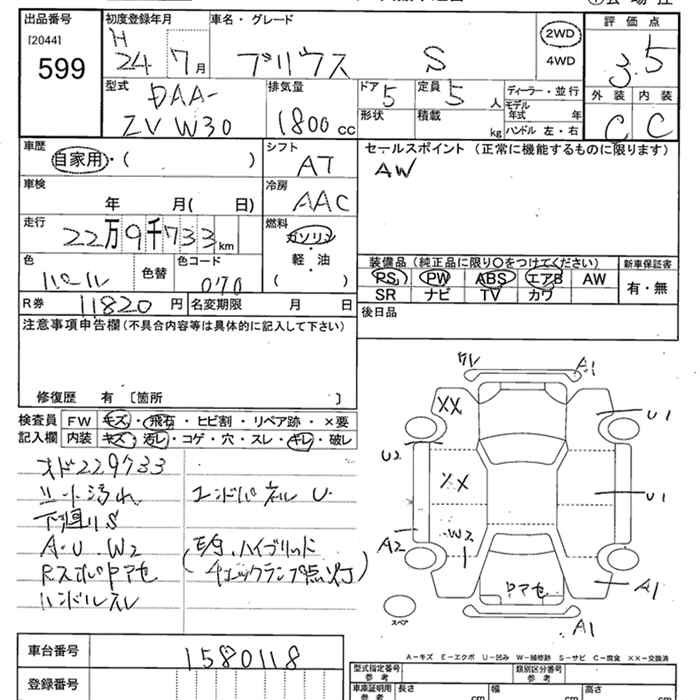 出品番号
[2044]
599
初度登録年月
H 24 7月
車名・グレード
プリウス S
2WD
4WD
評価点
3.5
外装 内装
C C
型式
DAA-
ZVW30
排気量
1800 cc
ドア 5
定員 5 人
形状
積載 kg
ディーラー・並行
モデル年式 年
ハンドル 左・右
車歴
自家用・( )
シフト
AT
セールスポイント (正常に機能するものに限ります)
AW
車検
年 月( 日)
冷房
AAC
走行
22万9千733km
燃料
ガソリン
軽・油
( )
色
パール
色替
色コード
070
装備品 (純正品に限り〇をつけてください)
新車保証書
PS PW ABS エアB AW
SR ナビ TV カワ
有・無
R券 11820円
名変期限 月 日
後日品
注意事項申告欄 (不具合内容等は具体的に記入して下さい)
修復歴 有 〔箇所 〕
検査員
記入欄
FW キズ・飛石・ヒビ割・リペア跡・×要
内装 キズ・汚レ・コゲ・穴・スレ・キレ・破レ
オド229733
シート汚れ
下廻りS
A・U・W2
Rスポイルアセ
ハンドルスレ
エンドパネルU
ハイブリッド
チェックランプ点灯)
A1
XX
U1
U2
XX
U1
W2
A2
アセ
A1
A1
スペア
A-キズ E-エクボ U-凹み W-補修跡 S-サビ C-腐食 XX-交換済
車台番号
1580118
登録番号
型式指定番号
参考
類別区分番号
参考
車庫証明用
参考
長さ cm
幅 cm
高さ cm